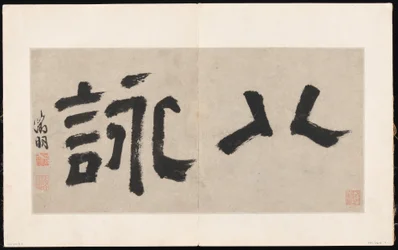 八詠
徵明